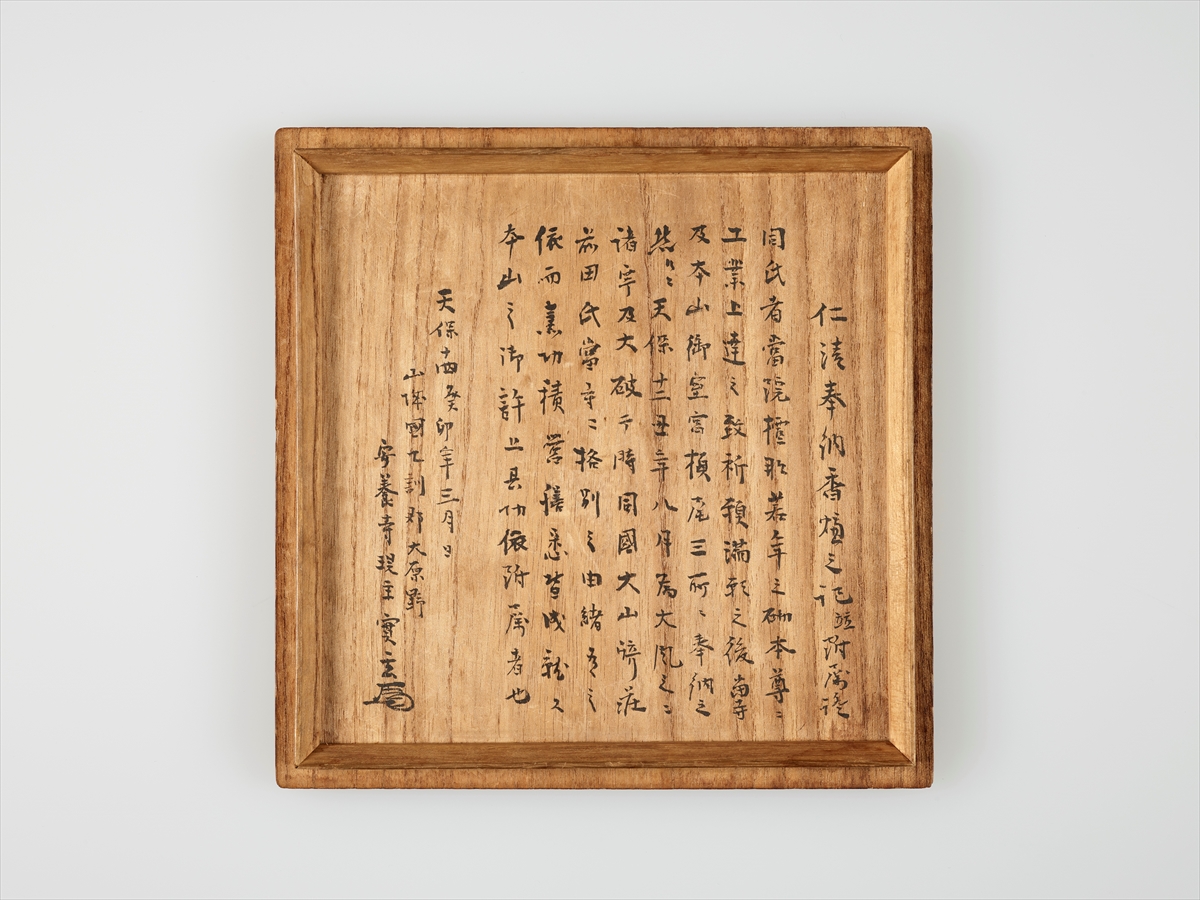 仁清奉納香爐之記並附属證
同氏者當院檀那若年之砌本尊ニ
工業上達之致祈願満願之後當寺
及本山御室宮槙尾三所ニ奉納之
然ルニ天保十二丑年八月為大風之ニ
諸宇及大破于時同國大山崎荘
前田氏當寺ニ格別之由緒有之
依而励功積営繕悉皆成就ス
本山之御許上其功依附属者也
天保十四癸卯年三月日
山城國乙訓郡大原野
安養寺現主實玄